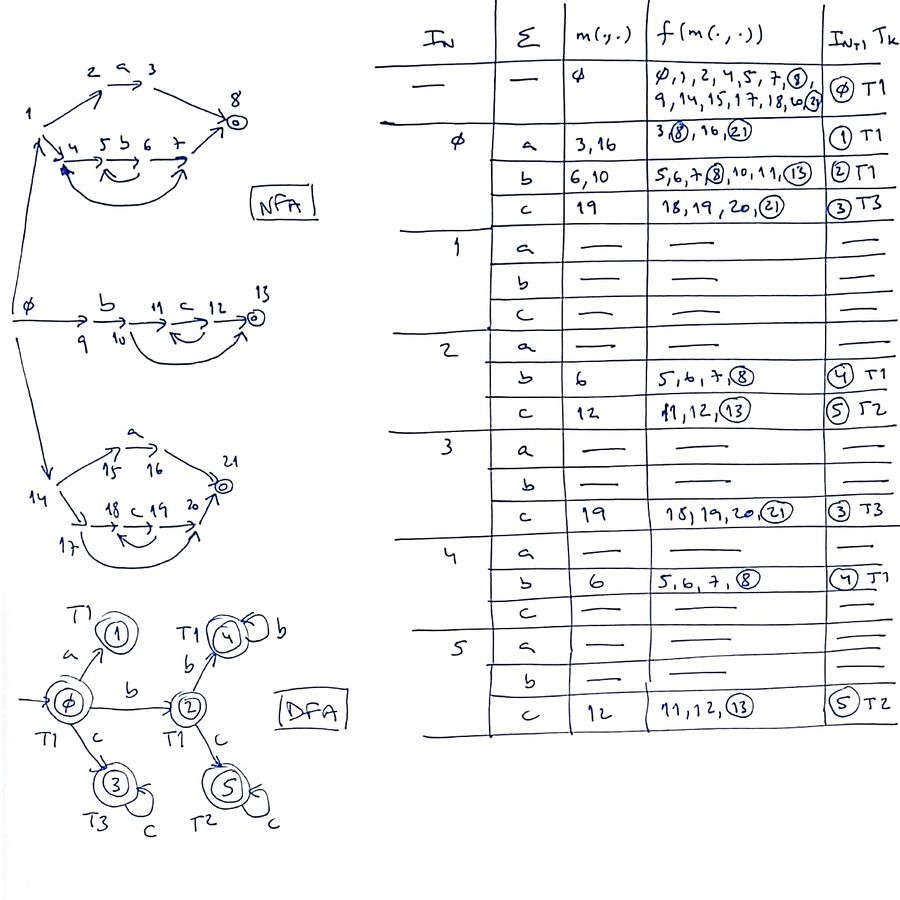 2 a 3
8
1
4 5 b 6 7
NFA
φ
b 11 c 12 13
9 10
a
15 16 21
14
18 c 19 20
17
T1
1 T1 4 b
a b
φ b 2
T1 c T1 c
DFA
3 5
T3 c T2 c
IN Σ m(·,·) f(m(·,·)) IN+1 TK
— — φ φ,1,2,4,5,7,8,
9,14,15,17,18,20,21 φ T1
φ a 3,16 3,8,16,21 1 T1
b 6,10 5,6,7,8,10,11,13 2 T1
c 19 18,19,20,21 3 T3
1 a — — —
b — — —
c — — —
2 a — — —
b 6 5,6,7,8 4 T1
c 12 11,12,13 5 T2
3 a — — —
b — — —
c 19 18,19,20,21 3 T3
4 a — — —
b 6 5,6,7,8 4 T1
c — — —
5 a — — —
b — — —
c 12 11,12,13 5 T2